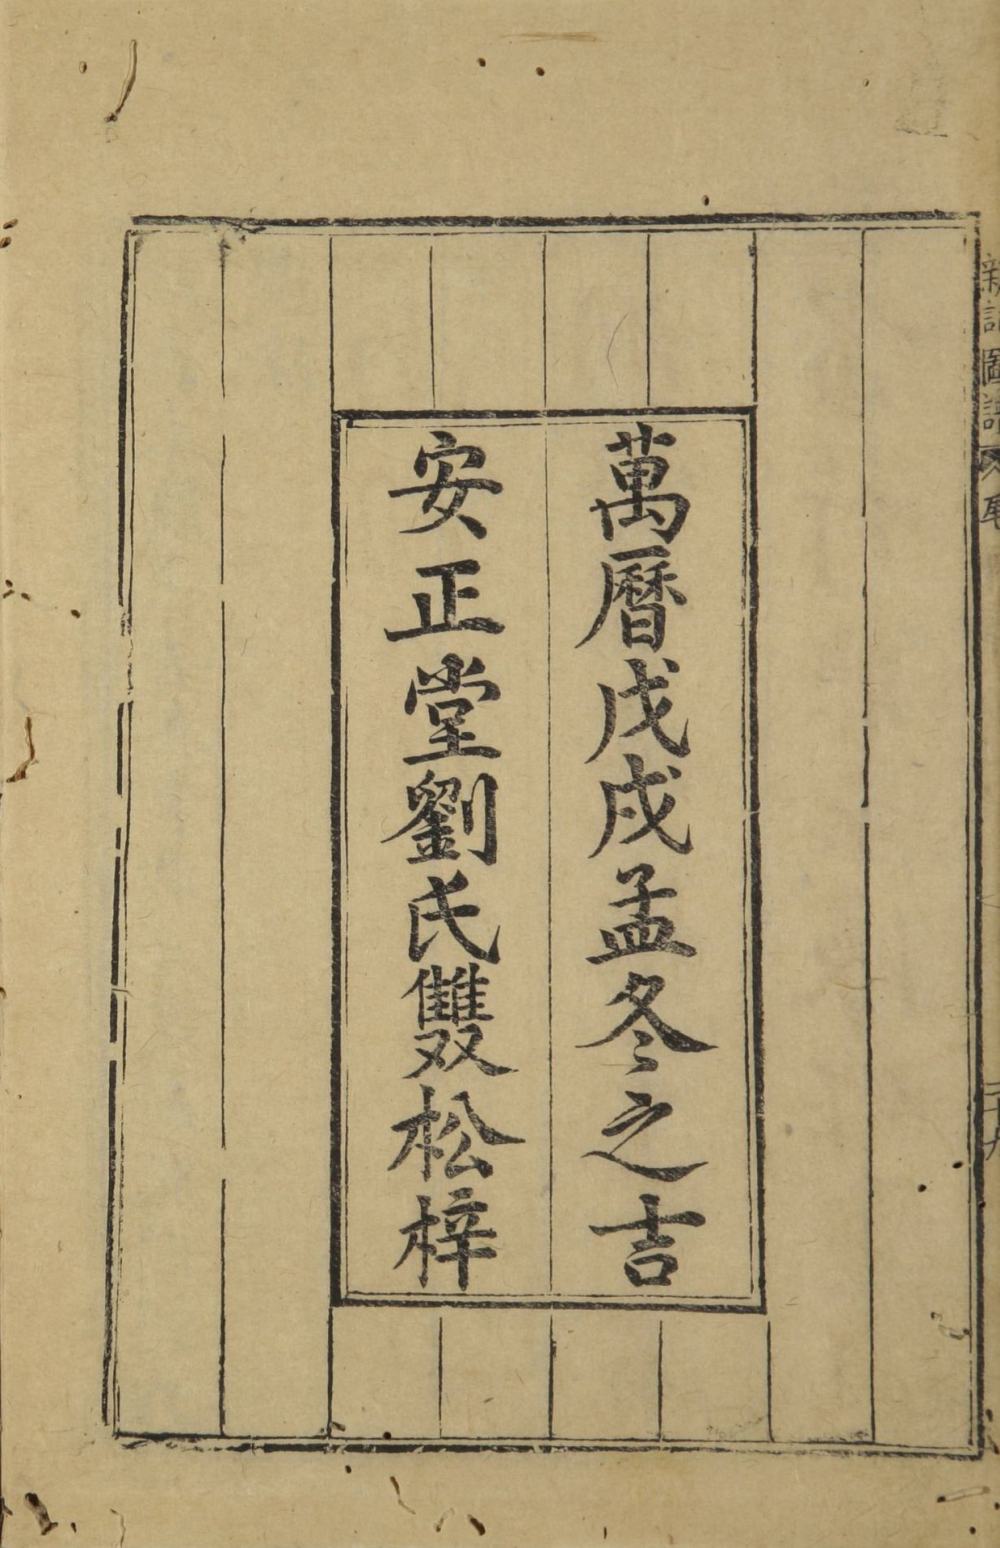 萬曆戊戌孟冬之吉
安正堂劉氏雙松梓